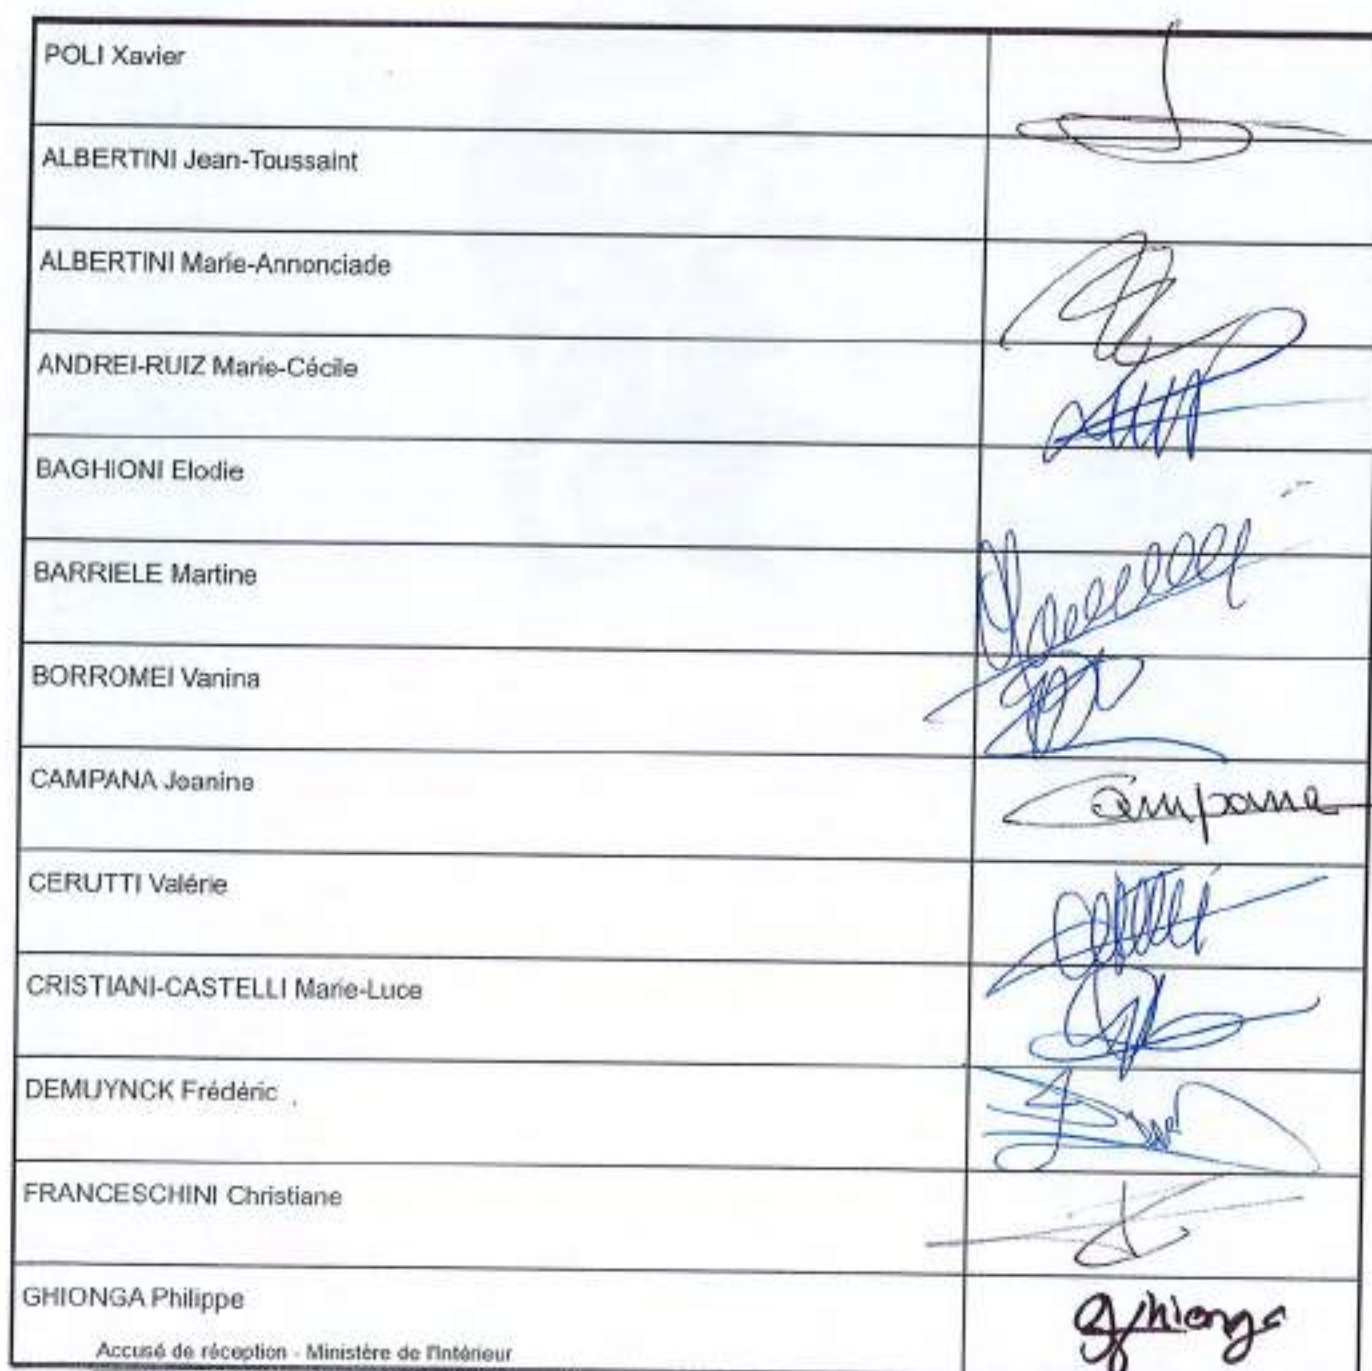 POLI Xavier
ALBERTINI Jean-Toussaint
ALBERTINI Marie-Annonciade
ANDREI-RUIZ Marie-Cécile
BAGHIONI Elodie
BARRIELE Martine
BORROMEI Vanina
CAMPANA Jeanine
Campana
CERUTTI Valérie
CRISTIANI-CASTELLI Marie-Luce
DEMUYNCK Frédéric
FRANCESCHINI Christiane
GHIONGA Philippe
Ghionga
Accusé de réception - Ministère de l'Intérieur